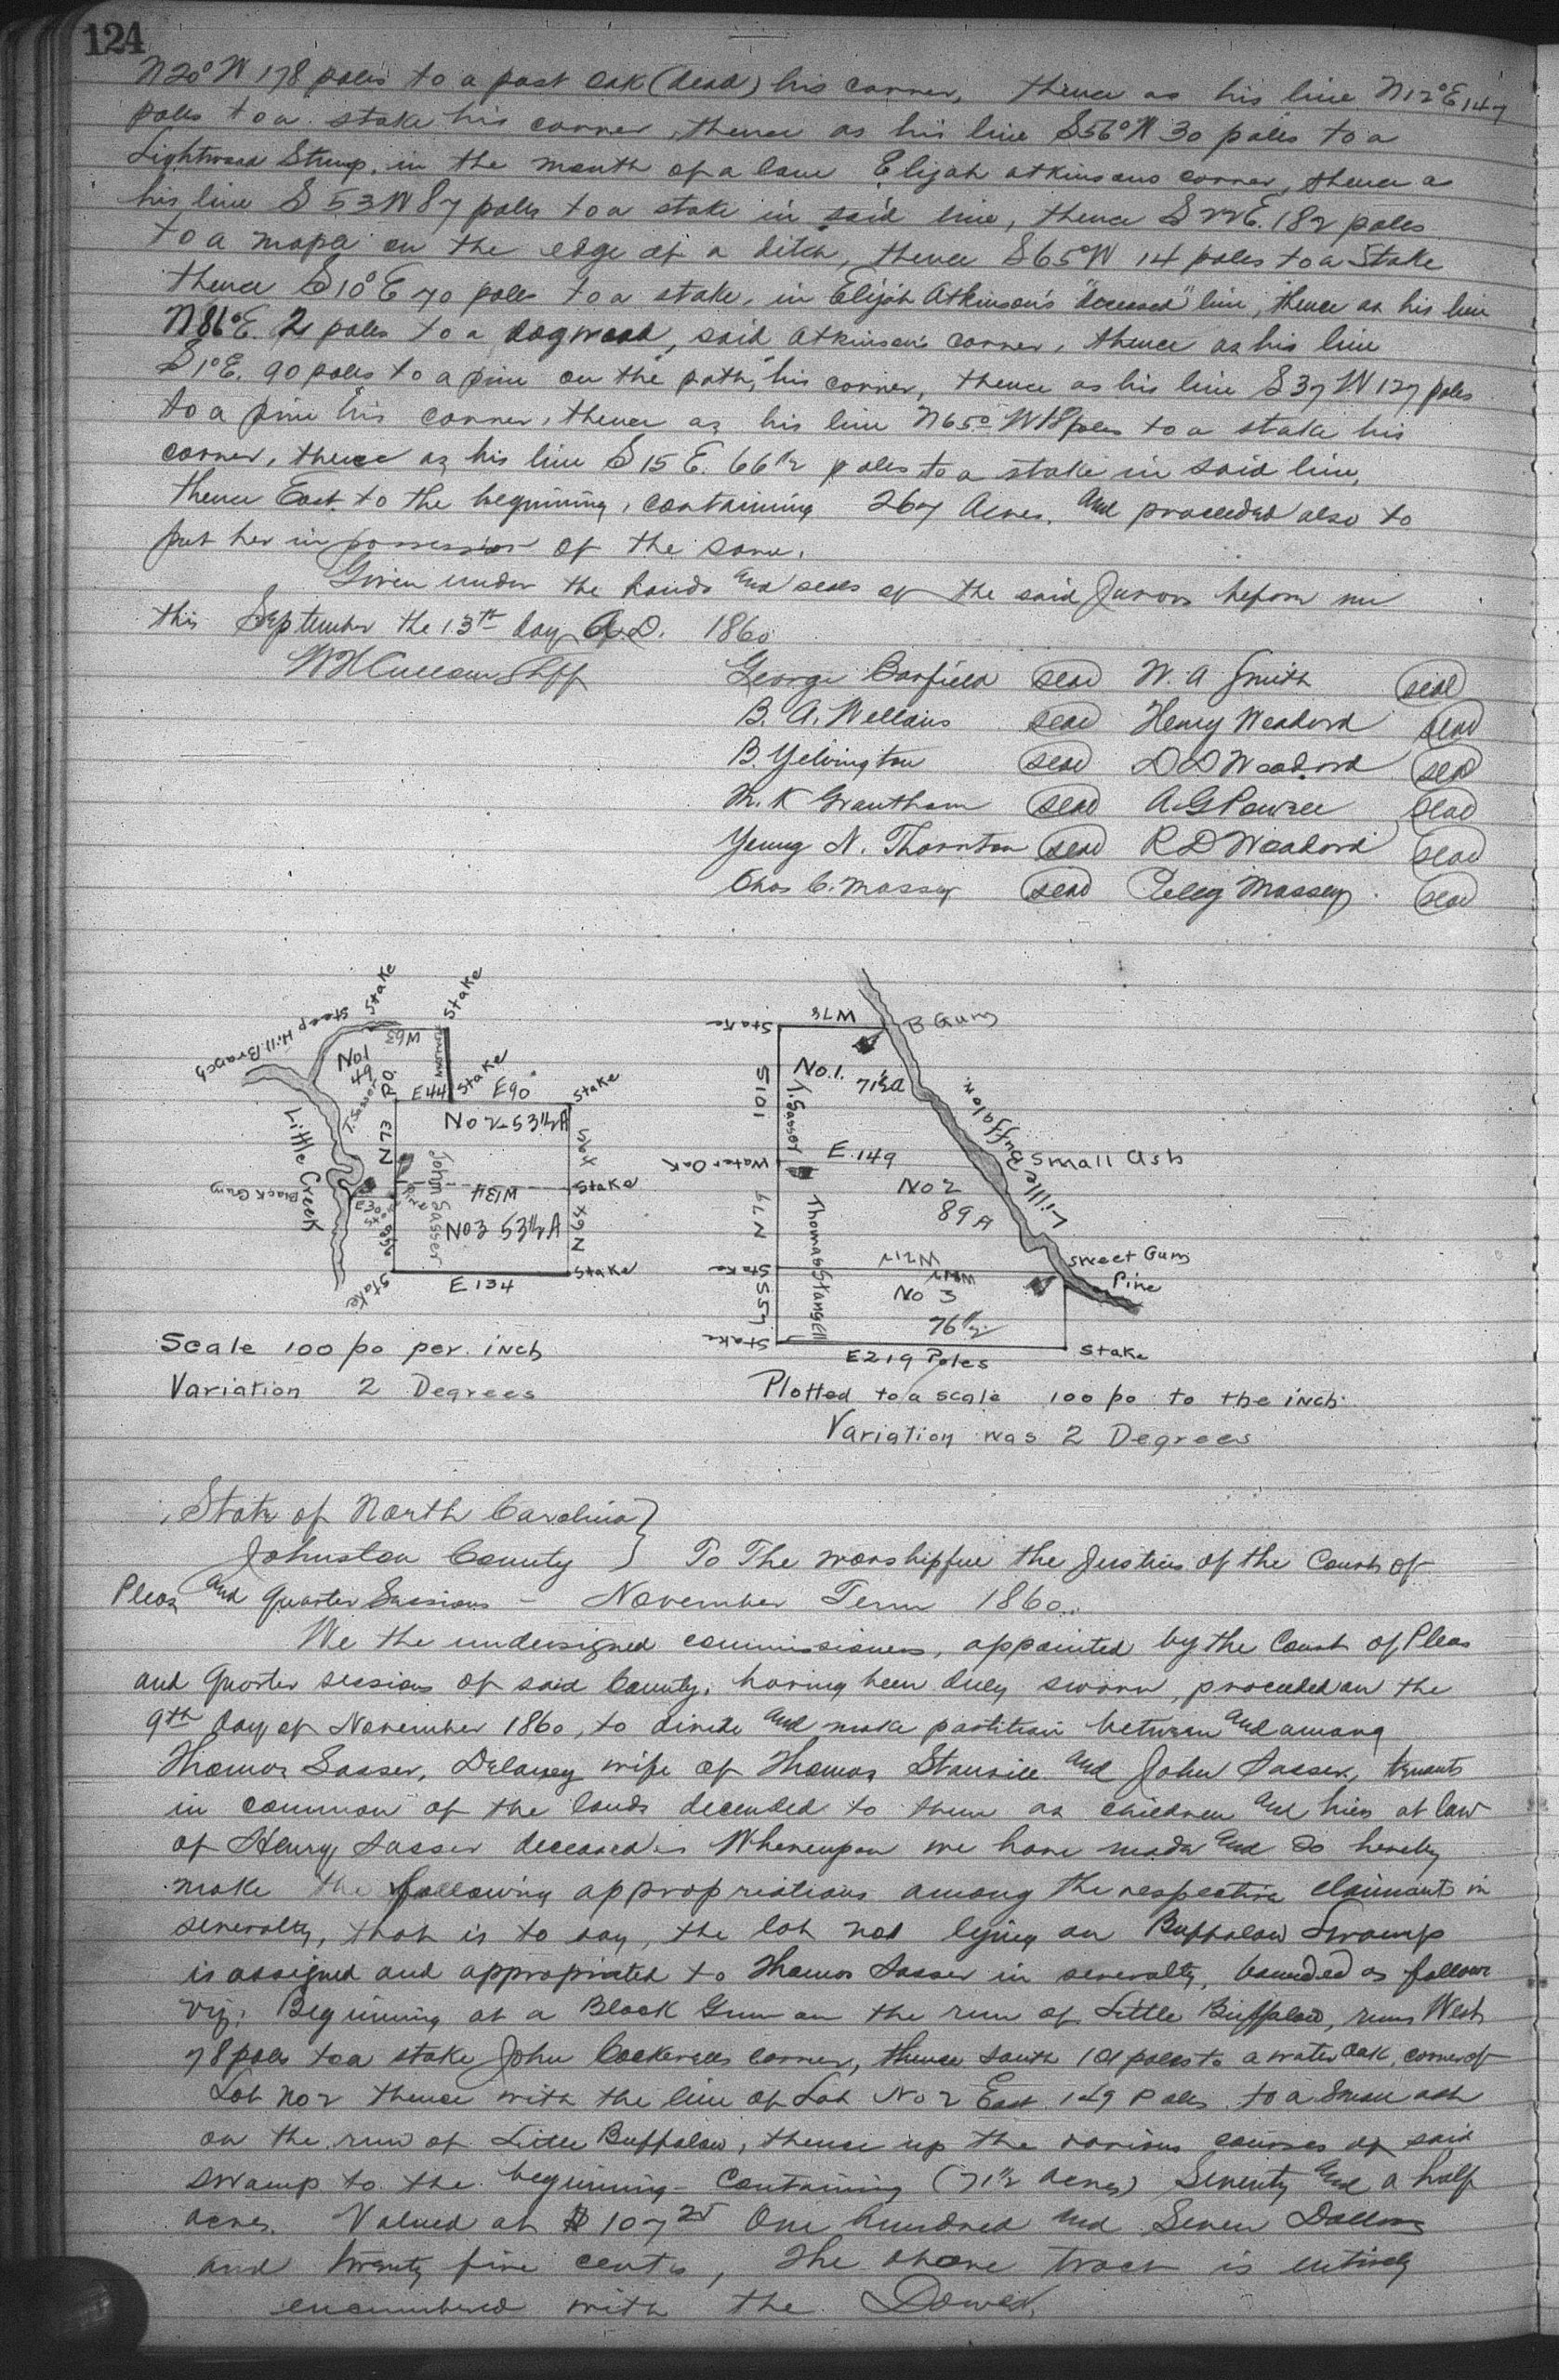 124
N20°W 178 poles to a post oak (dead) his corner, thence as his line N12°E 147
poles to a stake his corner, thence as his line S56°W 30 poles to a
Lightwood Stump, in the mouth of a lane Elijah atkinsons corner, thence as
his line S 53 W 87 poles to a stake in said line, thence S 22 E. 182 poles
to a mapla on the edge of a ditch, thence S65°W 14 poles to a Stake
thence S10°E 70 poles to a stake, in Elijah Atkinson's "deceased" line, thence as his line
N86°E. 2 poles to a dogwood, said atkinson's corner, thence as his line
S1°E. 90 poles to a pine on the path, his corner, thence as his line S 37 W 127 poles
to a pine his corner, thence as his line N65°W 18 poles to a stake his
corner, thence as his line S 15 E. 66 1/2 poles to a stake in said line,
thence East to the beginning, containing 267 Acres, and proceeded also to
put her in possession of the same.
Given under the hands and seals of the said Jurors before me
this September the 13th day A.D. 1860
George Barfield seal W. A Smith seal
B. A. Wellons seal Henry Woodard seal
B. Yelvington seal D D Woodard seal
M. K Grantham seal A. G Powell seal
Young N. Thornton seal R D Woodard seal
Chas C. Massey seal Massey seal
Stake Stake
Steep Hill Branch
W63
No 1
49
T. Sasser
PO.
E 44 Stake E 90 Stake
No 2 53 1/2 A
Little Creek
N 73
S 64
John Sasser
W 134 Stake
Black Gum
E 30
Pine
No 3 53 1/2 A
N 64
Stake E 134 Stake
Scale 100 po per. inch
Variation 2 Degrees
Stake W 78 B Gum
No. 1. 71 1/2 A
S 101
T. Sasser
Little Buffalow.
Water Oak E. 149 Small Ash
No 2
89 A
N 79
Thomas Stansell
Stake W 212 Sweet Gum
Pine
No 3
76 1/2
S 57
Stake E 219 Poles Stake
Plotted to a scale 100 po to the inch
Variation was 2 Degrees
State of North Carolina
Johnston County } To The worshipful the Justices of the Court of
Pleas and Quarter Sessions - November Term 1860.
We the undersigned commissioners, appointed by the Court of Pleas
and Quarter sessions of said County, having been duly sworn, proceeded on the
9th day of November 1860, to divide and make partition between and among
Thomas Sasser, Delaney wife of Thomas and John Sasser, tenants
in common of the lands decended to them as children and hiers at law
of Henry Sasser deceased Whereupon we have made and do hereby
make the following appropriations among the respective claimants in
severalty, that is to say, the lot no1 lying on Buffalow Swamp
is assigned and appropriated to Thomas Sasser in severalty, bounded as follows
viz: Beginning at a Black Gum on the run of Little Buffalow, runs West
78 poles to a stake John Cockerells corner, thence south 101 poles to a water oak, corner of
Lot No 2 thence with the line of Lot No 2 East 149 Poles to a Small ash
on the run of Little Buffalow, thence up the various courses of said
swamp to the beginning - Containing (71 1/2 acres) Seventy and a half
acres. Valued at $107 25 One hundred and Seven Dollars
and twenty five cents, The above tract is entirely
encumbered with the Dower,